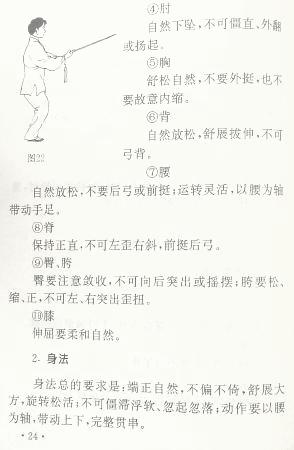 ④肘
自然下坠,不可僵直、外翻
或扬起。
⑤胸
舒松自然,不要外挺,也不
要故意内缩。
⑥背
自然放松,舒展拔伸,不可
弓背。
图22
⑦腰
自然放松,不要后弓或前挺;运转灵活,以腰为轴
带动手足。
⑧脊
保持正直,不可左歪右斜,前挺后弓。
⑨臀、胯
臀要注意敛收,不可向后突出或摇摆;胯要松、
缩、正,不可左、右突出歪扭。
⑩膝
伸屈要柔和自然。
2. 身法
身法总的要求是:端正自然,不偏不倚,舒展大
方,旋转松活;不可僵滞浮软、忽起忽落;动作要以腰
为轴,带动上下,完整贯串。
·24·